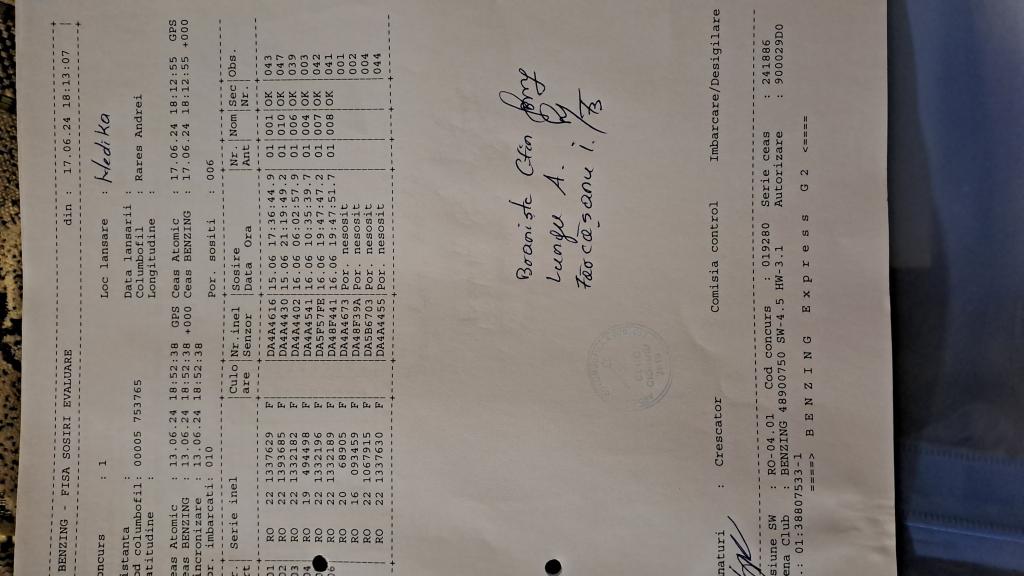 BENZING - FISA SOSIRI EVALUARE din : 17.06.24 18:13:07
oncurs : 1 Loc lansare : Medika
istanta : Data lansarii :
od columbofil: 00005 753765 Columbofil : Rares Andrei
atitudine : Longitudine :
eas Atomic : 13.06.24 18:52:38 GPS Ceas Atomic : 17.06.24 18:12:55 GPS
eas BENZING : 13.06.24 18:52:38 +000 Ceas BENZING : 17.06.24 18:12:55 +000
incronizare : 13.06.24 18:52:38
r. imbarcati: 010 Por. sositi : 006
r. Serie inel Culo Nr.inel Sosire Nr Nom Sec Obs.
rt are Senzor Data Ora Ant Nr.
01 RO 22 1337629 F DA4A4616 15.06 17:36:44.9 01 001 OK 043
02 RO 22 1393685 F DA4A4430 15.06 21:19:49.2 01 010 OK 047
03 RO 22 1332182 F DA4A4402 16.06 06:02:55.2 01 006 OK 039
04 RO 19 494498 F DA4A4541 16.06 10:35:39.7 01 004 OK 003
RO 22 1332196 F DA5F57FE 16.06 19:47:47.2 01 007 OK 042
6 RO 22 1332189 F DA48F441 16.06 19:47:51.7 01 008 OK 041
RO 20 68905 F DA4A4673 Por. nesosit 001
RO 16 093459 F DA48F39A Por. nesosit 002
RO 22 1067915 F DA5B6703 Por. nesosit 004
RO 22 1337630 F DA4A4455 Por. nesosit 044
Braniste Ctin
Lungu A.
Farcasanu i.
naturi : Crescator Comisia control Imbarcare/Desigilare
siune SW : RO-04.01 Cod concurs : 019280 Serie ceas : 241886
ena Club : BENZING 48900750 SW-4.5 HW-3.1 Autorizare : 900029D0
.: 01:38807533-1
====> B E N Z I N G E x p r e s s G 2 <====